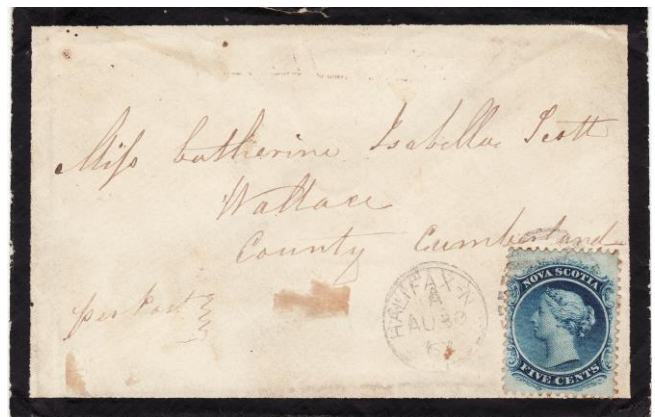 Miss Catherine Isabella Scott
Wallace
County Cumberland
per Post
HALIFAX-N
A
AU 30
NOVA SCOTIA
FIVE CENTS